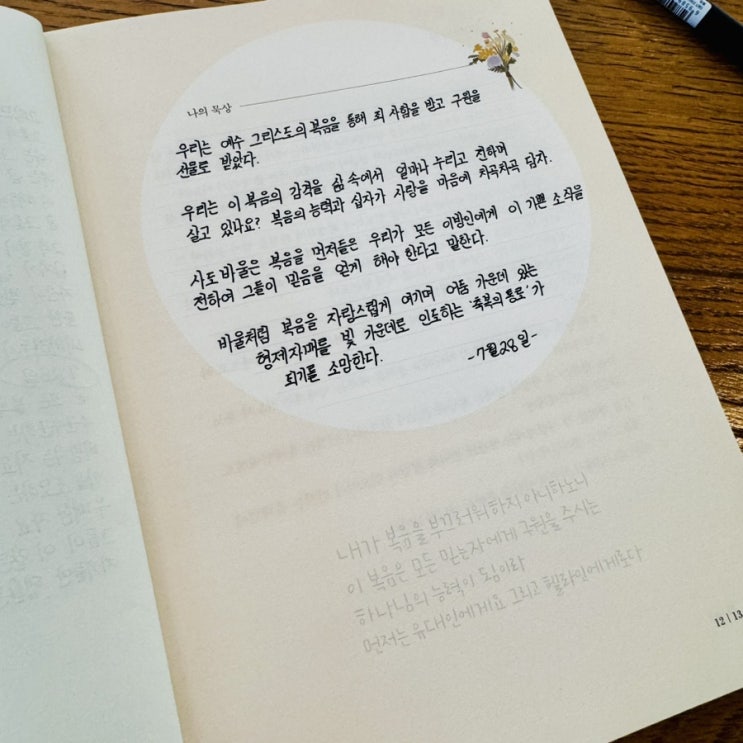 나의 묵상
우리는 예수 그리스도의 복음을 통해 죄 사함을 받고 구원을
선물로 받았다.
우리는 이 복음의 감격을 삶 속에서 얼마나 누리고 전하며
살고 있나요? 복음의 능력과 십자가 사랑을 마음에 차곡차곡 담자.
사도 바울은 복음을 먼저들은 우리가 모든 이방인에게 이 기쁜 소식을
전하여 그들이 믿음을 얻게 해야 한다고 말한다.
바울처럼 복음을 자랑스럽게 여기며 어둠 가운데 있는
형제자매를 빛 가운데로 인도하는 '축복의 통로'가
되기를 소망한다.
-7월28일-
내가 복음을 부끄러워하지 아니하노니
이 복음은 모든 믿는자에게 구원을 주시는
하나님의 능력이 됨이라
먼저는 유대인에게요 그리고 헬라인에게로다
12 | 13